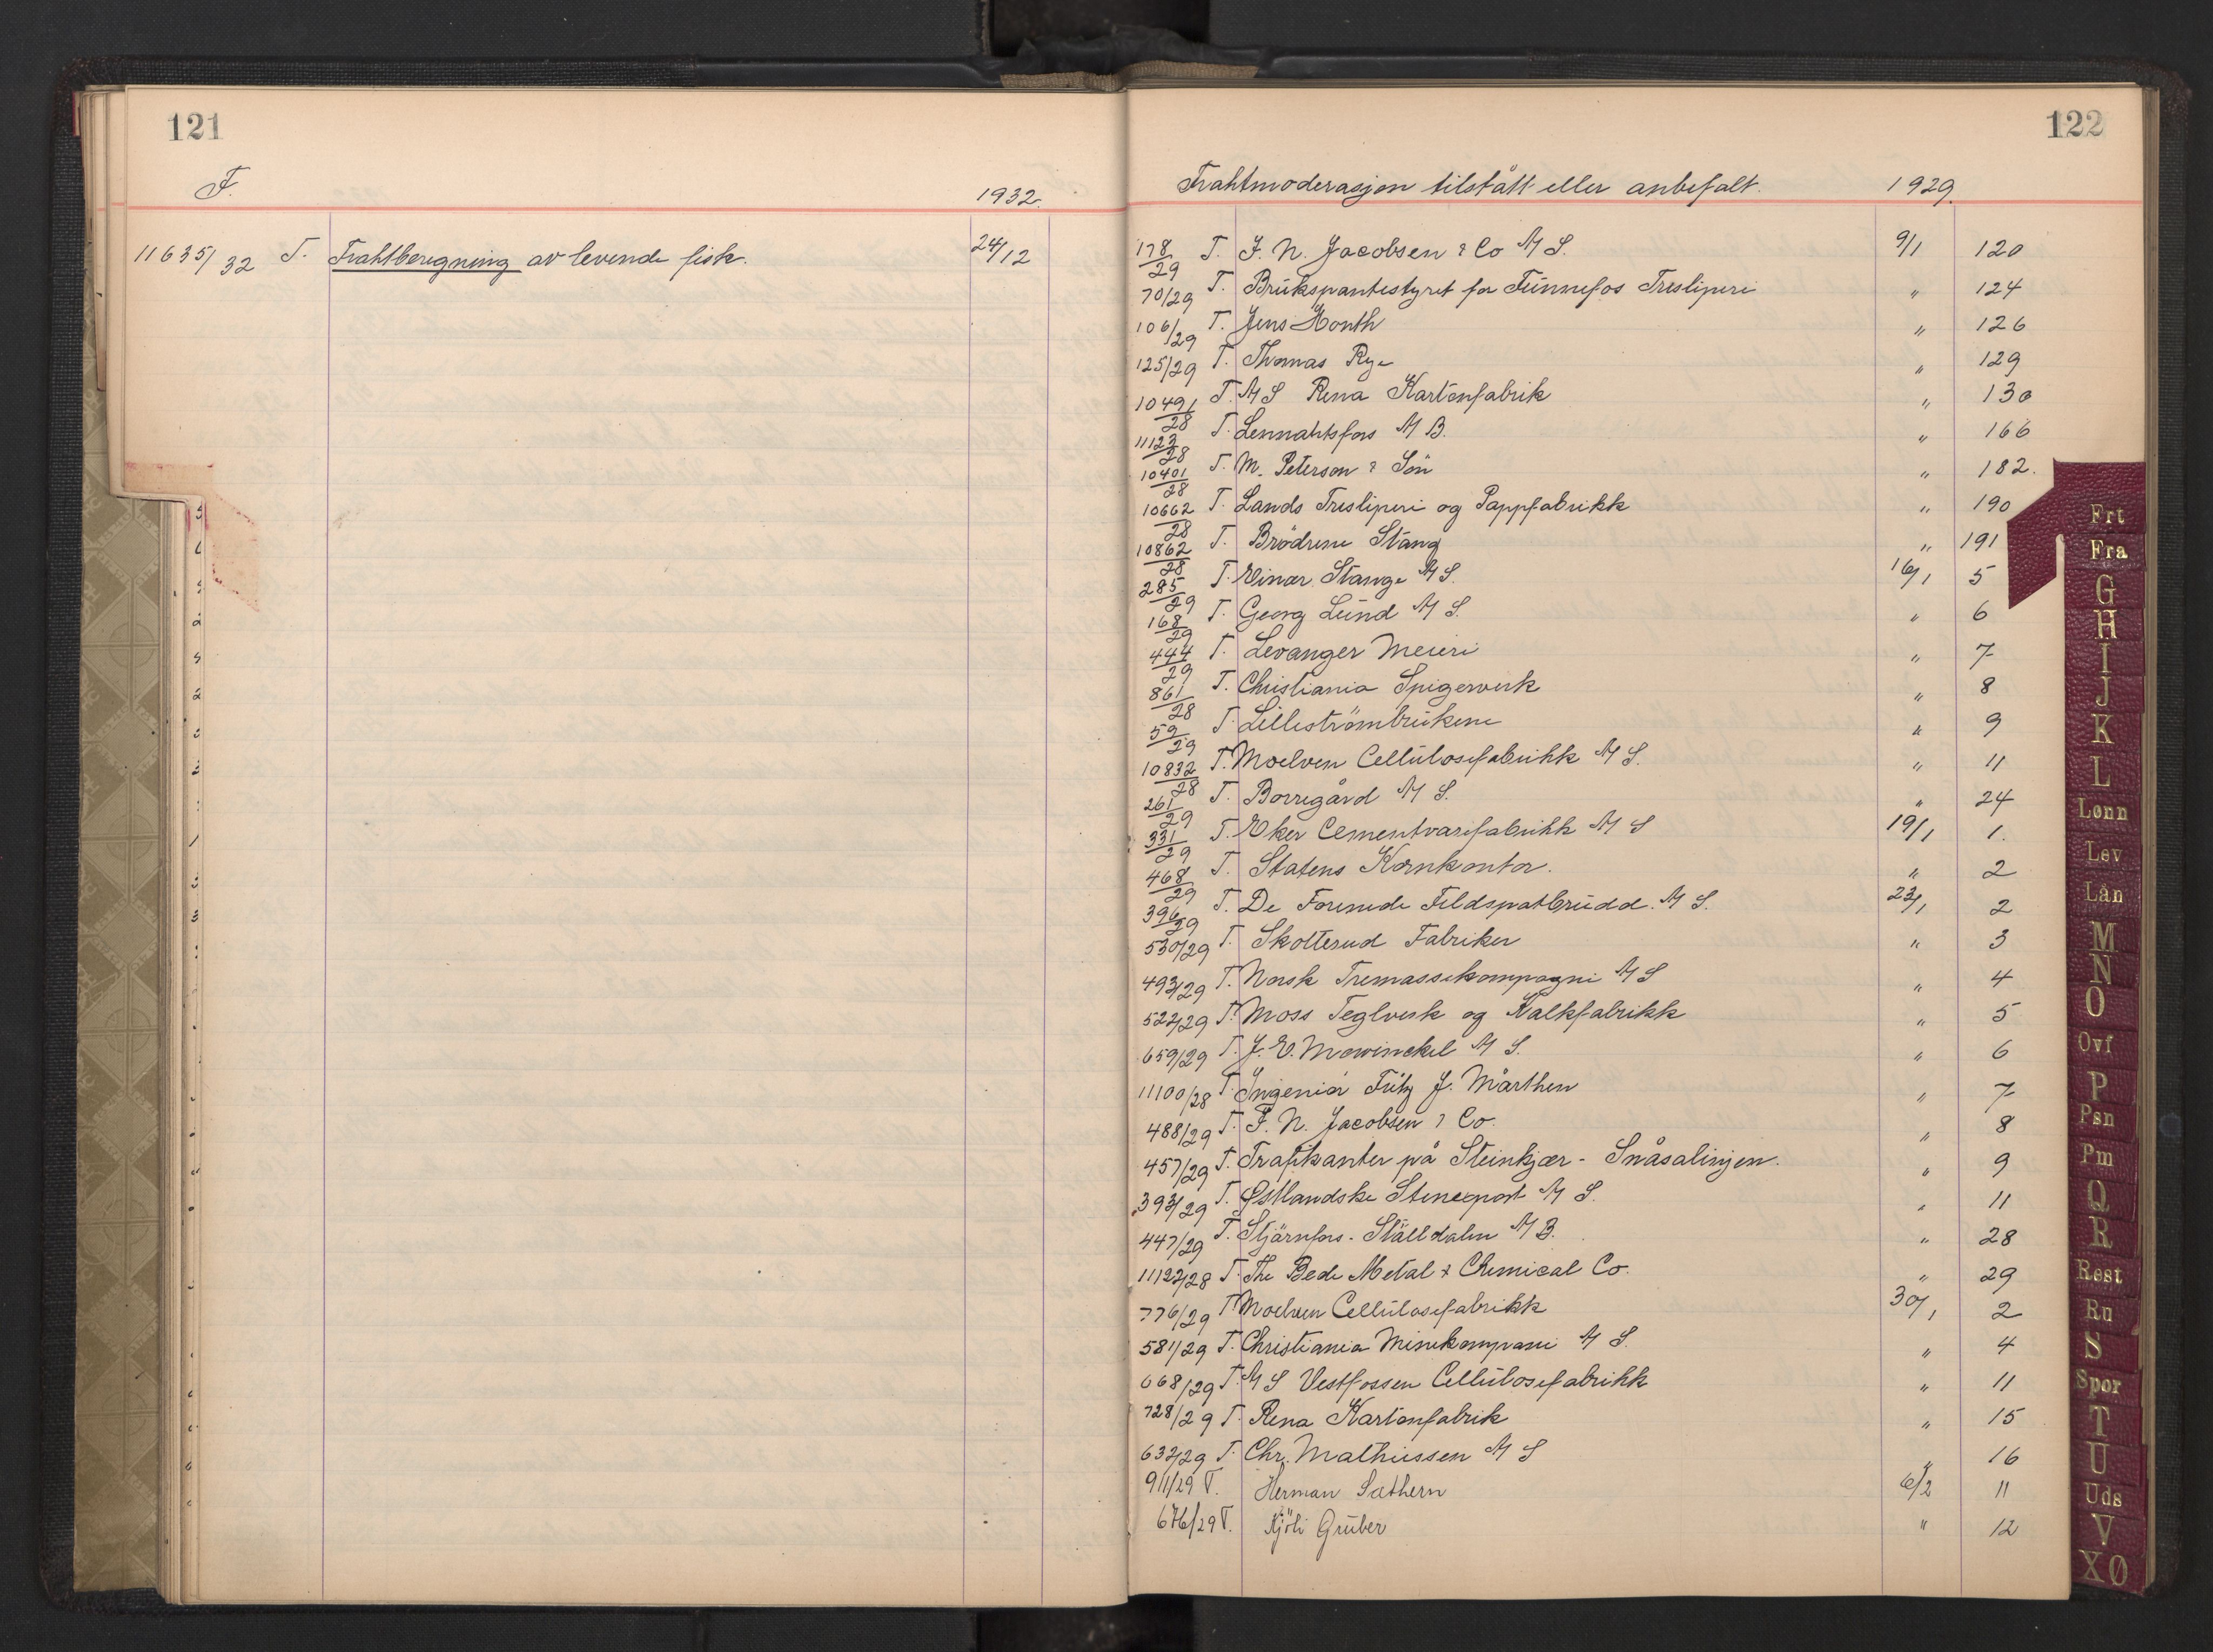 121
F. 1932.
11635/32 T. Frahtberegning av levende fisk. 24/12
122
Frahtmoderasjon tilstått eller anbefalt. 1929.
178/29 T. F. N. Jacobsen & Co A/S. 9/1 120
70/29 T. Brukspantestyret for Funnefos Tresliperi " 124
106/29 T. Jens Honth " 126
125/29 T. Thomas Rye " 129
10491/28 T. A/S Rena Kartonfabrik " 130
11123/28 T. Lennartsfors A/B. " 166
10401/28 T. M. Peterson & Sön " 182.
10662/28 T. Lands Tresliperi og Pappfabrikk " 190
10862/28 T. Brödrene Stang " 191
285/29 T. Einar Stange A/S. 16/1 5
168/29 T. Georg Lund A/S. " 6
444/29 T. Levanger Meieri " 7
861/28 T. Christiania Spigerverk " 8
59/29 T. Lilleströmbrukene " 9
10832/28 T. Moelven Cellulosefabrikk A/S. " 11
261/29 T. Borregård A/S. " 24
331/29 T. Eker Cementvarefabrikk A/S 19/1 1.
468/29 T. Statens Kornkontor. " 2
396/29 T. De Forenede Feldspatbrudd. A/S. 23/1 2
530/29 T. Skotterud Fabriker " 3
493/29 T. Norsk Tremassekompagni A/S " 4
522/29 T. Moss Teglverk og Kalkfabrikk " 5
659/29 T. J. E. Mowinckel A/S. " 6
11100/28 T. Ingeniör Fritz J. Mårthen " 7
488/29 T. F. N. Jacobsen & Co. " 8
457/29 T. Trafikanter på Steinkjær - Snåsalinjen. " 9
393/29 T. Østlandske Stenexport A/S. " 11
447/29 T. Stjärnfors - Ställdalen A/B. " 28
11192/28 T. The Bede Metal & Chemical Co. " 29
776/29 T. Moelven Cellulosefabrikk 30/1 2
581/29 T. Christiania Minekompani A/S. " 4
668/29 T. A/S Vestfossen Cellulosefabrikk " 11
728/29 T. Rena Kartonfabrik " 15
632/29 T. Chr. Mathiussen A/S " 16
911/29 T. Herman Sathern 6/2 11
676/29 T. Kjöli Gruber " 12
Frt
Fra
G
H
I
J
K
L
Lønn
Lev
Lån
M
N
O
Ovf
P
Psn
Pm
Q
R
Rest
Ru
S
Spor
T
U
Uds
V
X Ø